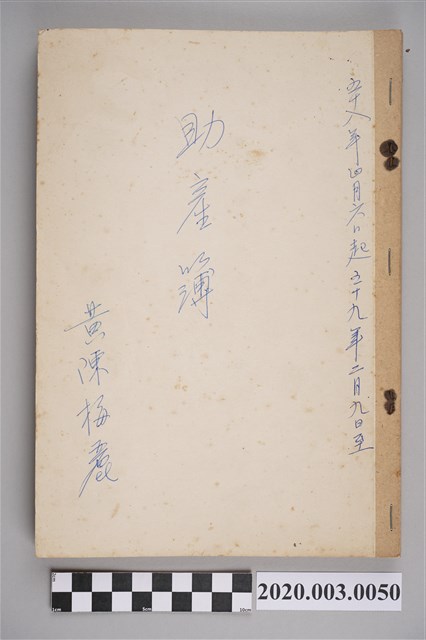 五十八年四月六日起五十九年二月九日至
助產簿
黃陳梅麗
1cm 5cm 10cm
2020.003.0050